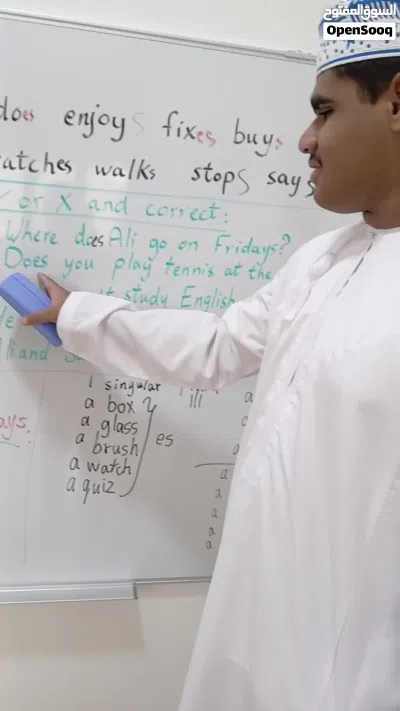 السوق المفتوح
OpenSooq
does enjoys fixes buys
atches walks stops says
or X and correct:
Where does Ali go on Fridays?
Does you play tennis at the
study English
and
1 singular
a box
a glass
a brush es
a watch
a quiz
ays.
a
a
a
a
a